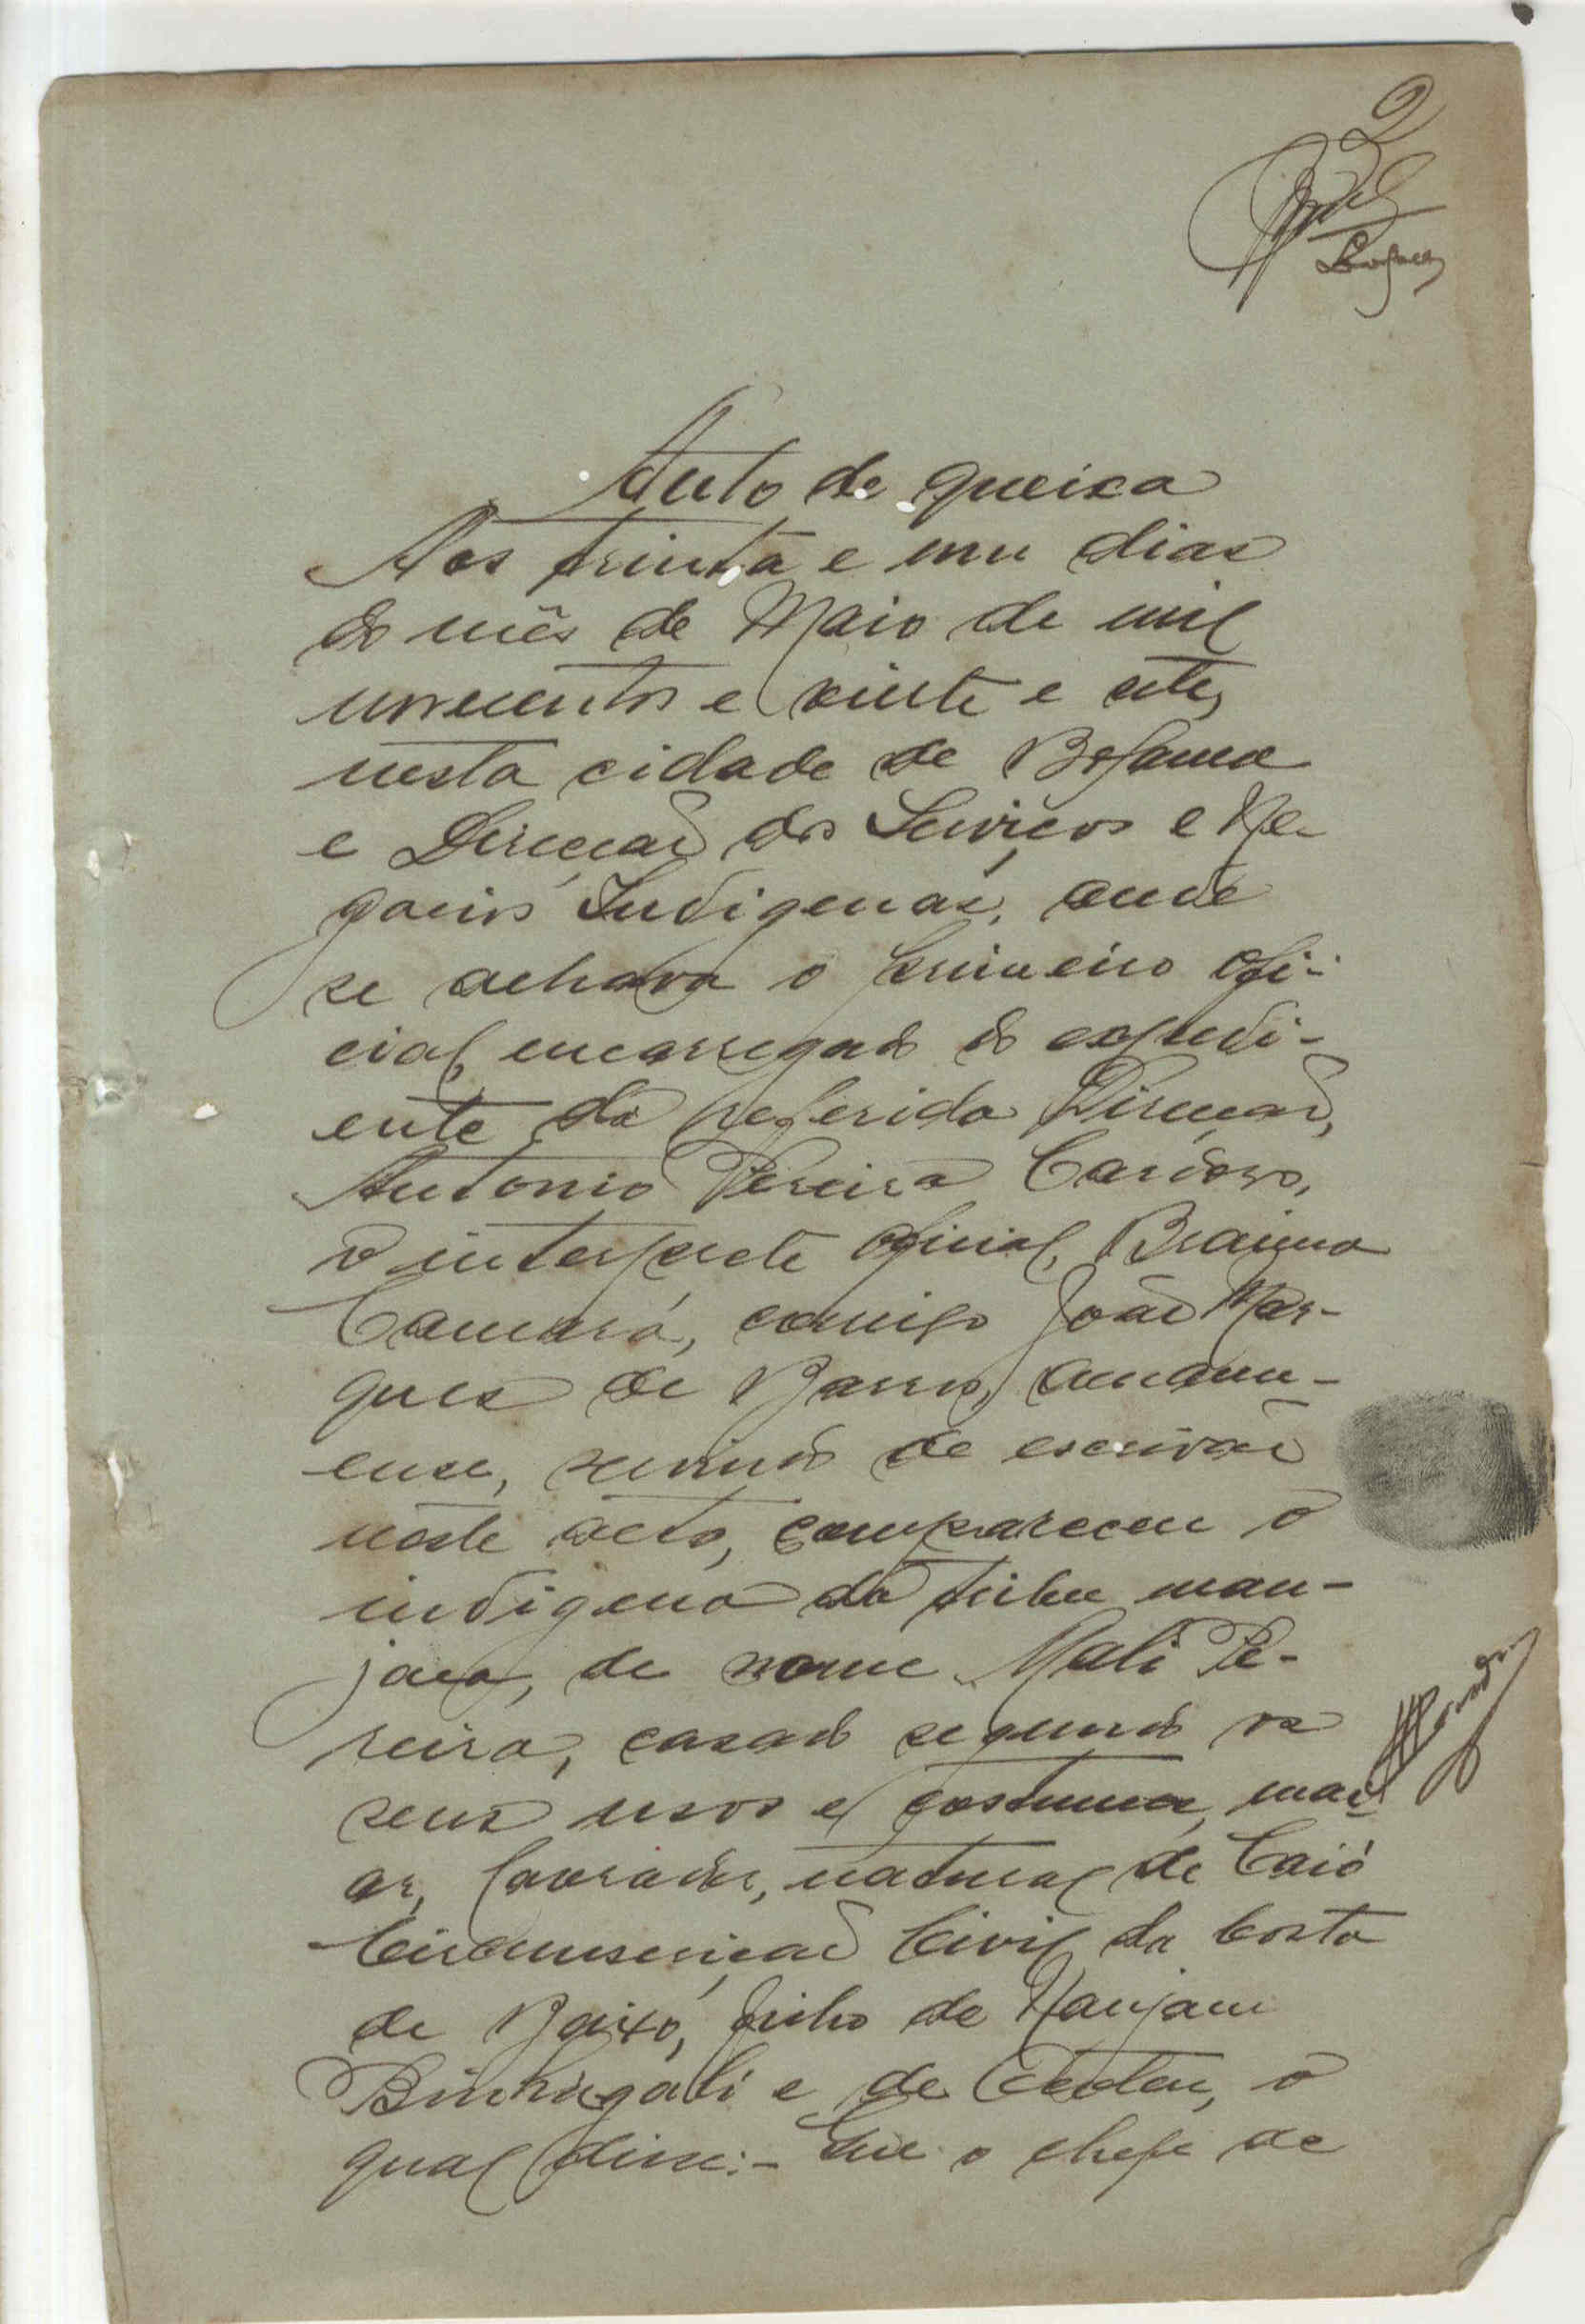 2
Auto de queixa
Aos trinta e um dias
do mês de Maio de mil
novecentos e vinte e sete,
nesta cidade de Bolama
e Direcção dos Serviços e Ne-
gocios Indigenas, onde
se achava o primeiro ofi-
cial, encarregado do expedi-
ente da referida Direcção,
Antonio Pereira Cardoso,
o interprete oficial, Braima
Camará, comigo João Mar-
ques de Barros, amanu-
ense, servindo de escrivão
neste acto, compareceu o
indigena da tribu man-
jaca, de nome Mali Pe-
reira, casado segundo os
seus usos e costumes, mai-
or, lavrador, natural de Caió
Circunscrição Civil da Costa
de Baixo, filho de
e de o
qual disse:- Que o chefe de